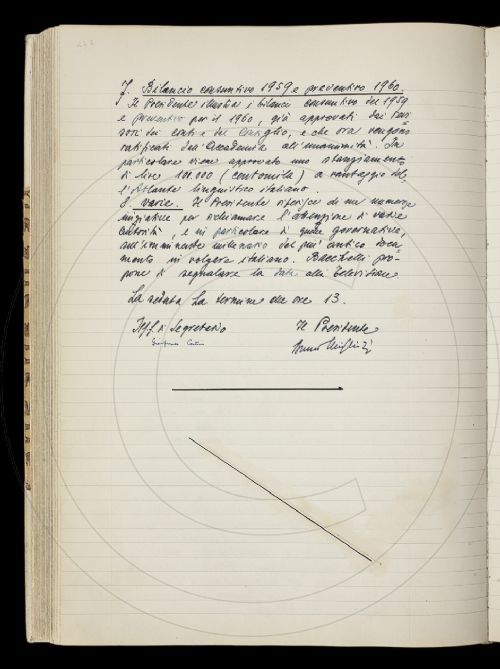 7. Bilancio consuntivo 1959 e preventivo 1960.
Il Presidente illustra i bilanci consuntivo del 1959
e preventivo per il 1960, già approvati dai Revi-
sori dei conti e dal Consiglio, e che ora vengono
ratificati dall'Accademia all'unanimità. In
particolare viene approvato uno stanziamento
di lire 100.000 (centomila) a vantaggio del-
l'Atlante linguistico italiano.
8. Varie. Il Presidente riferisce di sue numerose
iniziative per richiamare l'attenzione di varie
autorità, e in particolare di quelle governative,
sull'imminente millenario del più antico docu-
mento in volgare italiano. Bacchelli pro-
pone di segnalare la data alla Televisione
La seduta ha termine alle ore 13.
Il Segretario Il Presidente
Bruno Migliorini